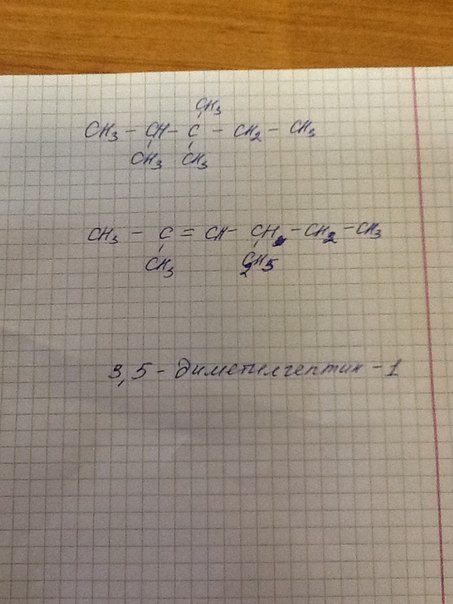 CH₃
CH₃ - CH - C - CH₂ - CH₃
CH₃ CH₃
CH₃ - C = CH - CH - CH₂ - CH₃
CH₃ C₂H5
3,5 - диметилгептин - 1